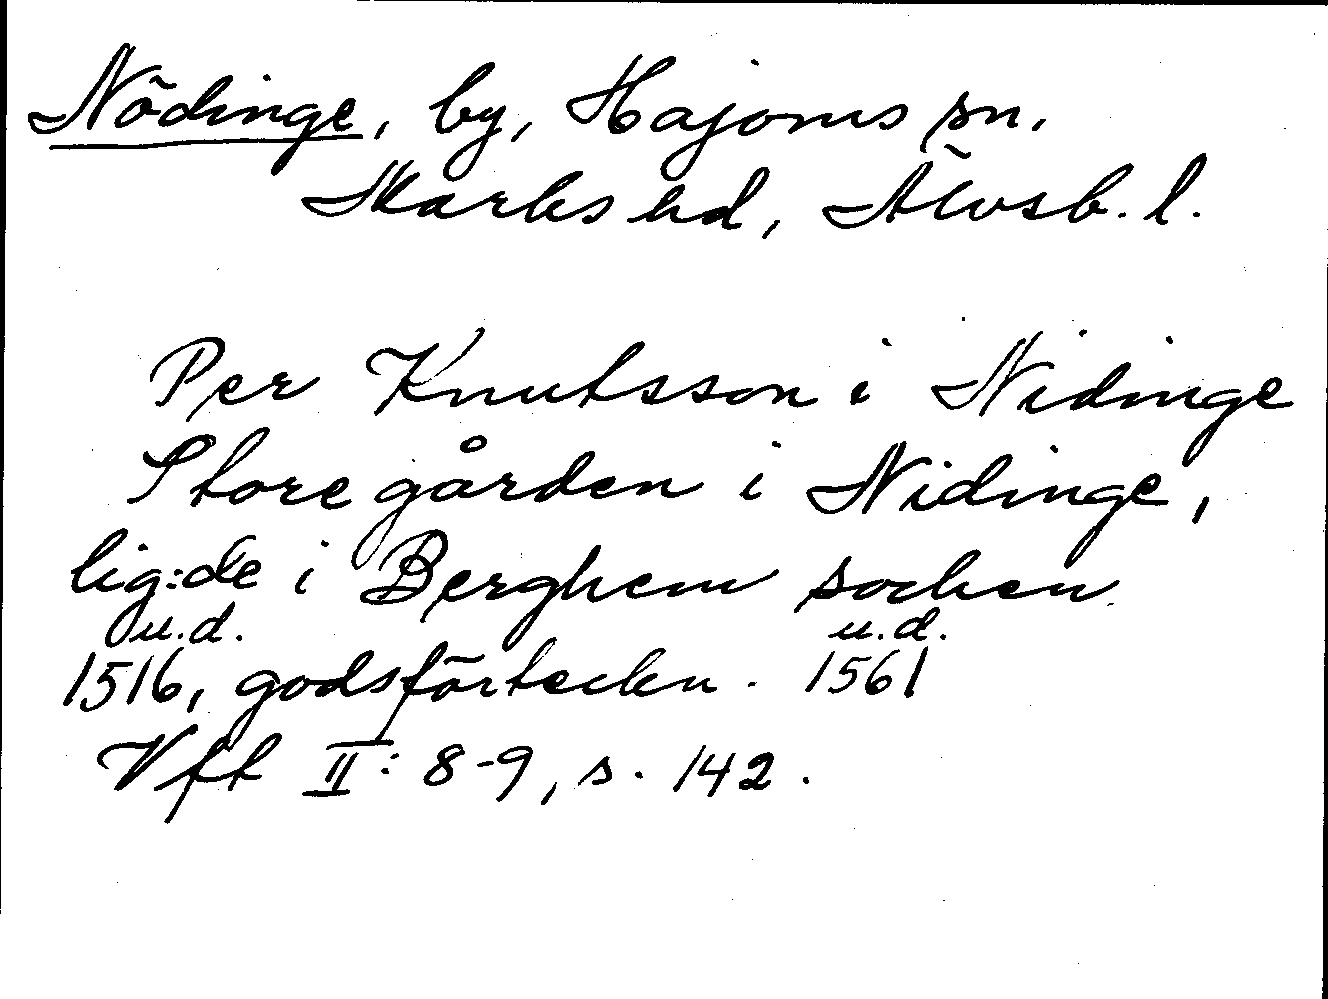 Nödinge, by, Hajoms sn.
Marks hd, Älvsb. l.
Per Knutsson i Nidinge
Storegården i Nidinge,
lig:de i Berghem socken
u.d. u.d.
1516, godsförteckn. 1561
Vft II: 8-9, s. 142.